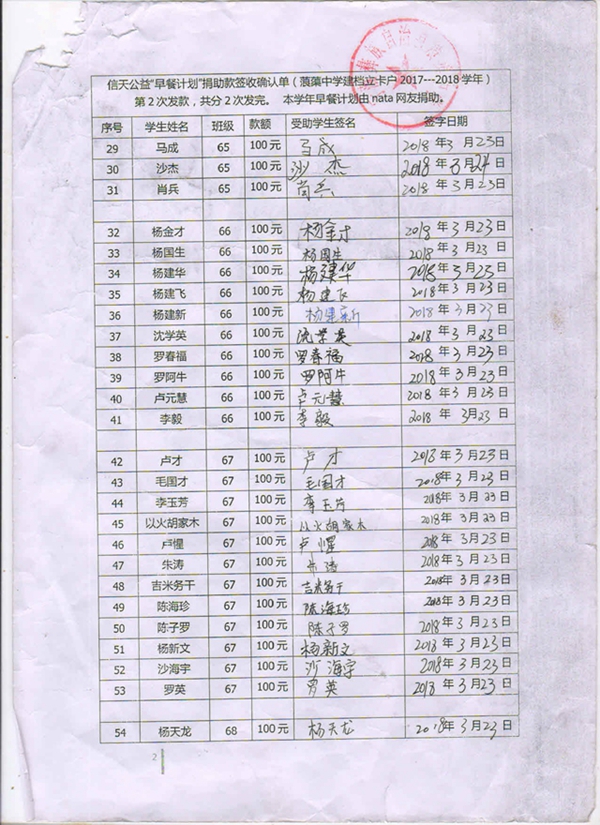 信天公益“早餐计划”捐助款签收确认单（蒗蕖中学建档立卡户2017---2018学年）
第2次发款，共分2次发完。 本学年早餐计划由nata网友捐助。
序号 学生姓名 班级 款额 受助学生签名 签字日期
29 马成 65 100元 马成 2018年3月23日
30 沙杰 65 100元 沙杰 2018年3月24日
31 肖兵 65 100元 肖兵 2018年3月23日
32 杨金才 66 100元 杨金才 2018年3月23日
33 杨国生 66 100元 杨国生 2018年3月23日
34 杨建华 66 100元 杨建华 2018年3月23日
35 杨建飞 66 100元 杨建飞 2018年3月23日
36 杨建新 66 100元 杨建新 2018年3月23日
37 沈学英 66 100元 沈学英 2018年3月23日
38 罗春福 66 100元 罗春福 2018年3月23日
39 罗阿牛 66 100元 罗阿牛 2018年3月23日
40 卢元慧 66 100元 卢元慧 2018年3月23日
41 李毅 66 100元 李毅 2018年3月23日
42 卢才 67 100元 卢才 2018年3月23日
43 毛国才 67 100元 毛国才 2018年3月23日
44 李玉芳 67 100元 李玉芳 2018年3月23日
45 以火胡家木 67 100元 以火胡家木 2018年3月23日
46 卢惺 67 100元 卢惺 2018年3月23日
47 朱涛 67 100元 2018年3月23日
48 吉米务干 67 100元 吉米务干 2018年3月23日
49 陈海珍 67 100元 陈海珍 2018年3月23日
50 陈子罗 67 100元 陈子罗 2018年3月23日
51 杨新文 67 100元 杨新文 2018年3月23日
52 沙海宇 67 100元 沙海宇 2018年3月23日
53 罗英 67 100元 罗英 2018年3月23日
54 杨天龙 68 100元 杨天龙 2018年3月23日
2